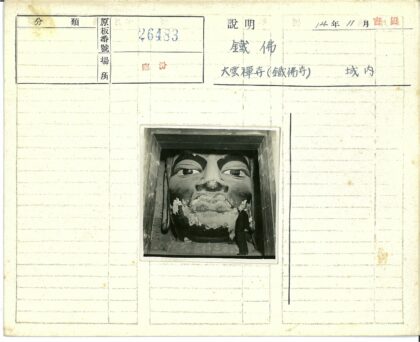 分類
原板番號 26483
場所 臨汾
説明 14年11月
鐵佛
大雲禪寺(鐵佛寺) 城内